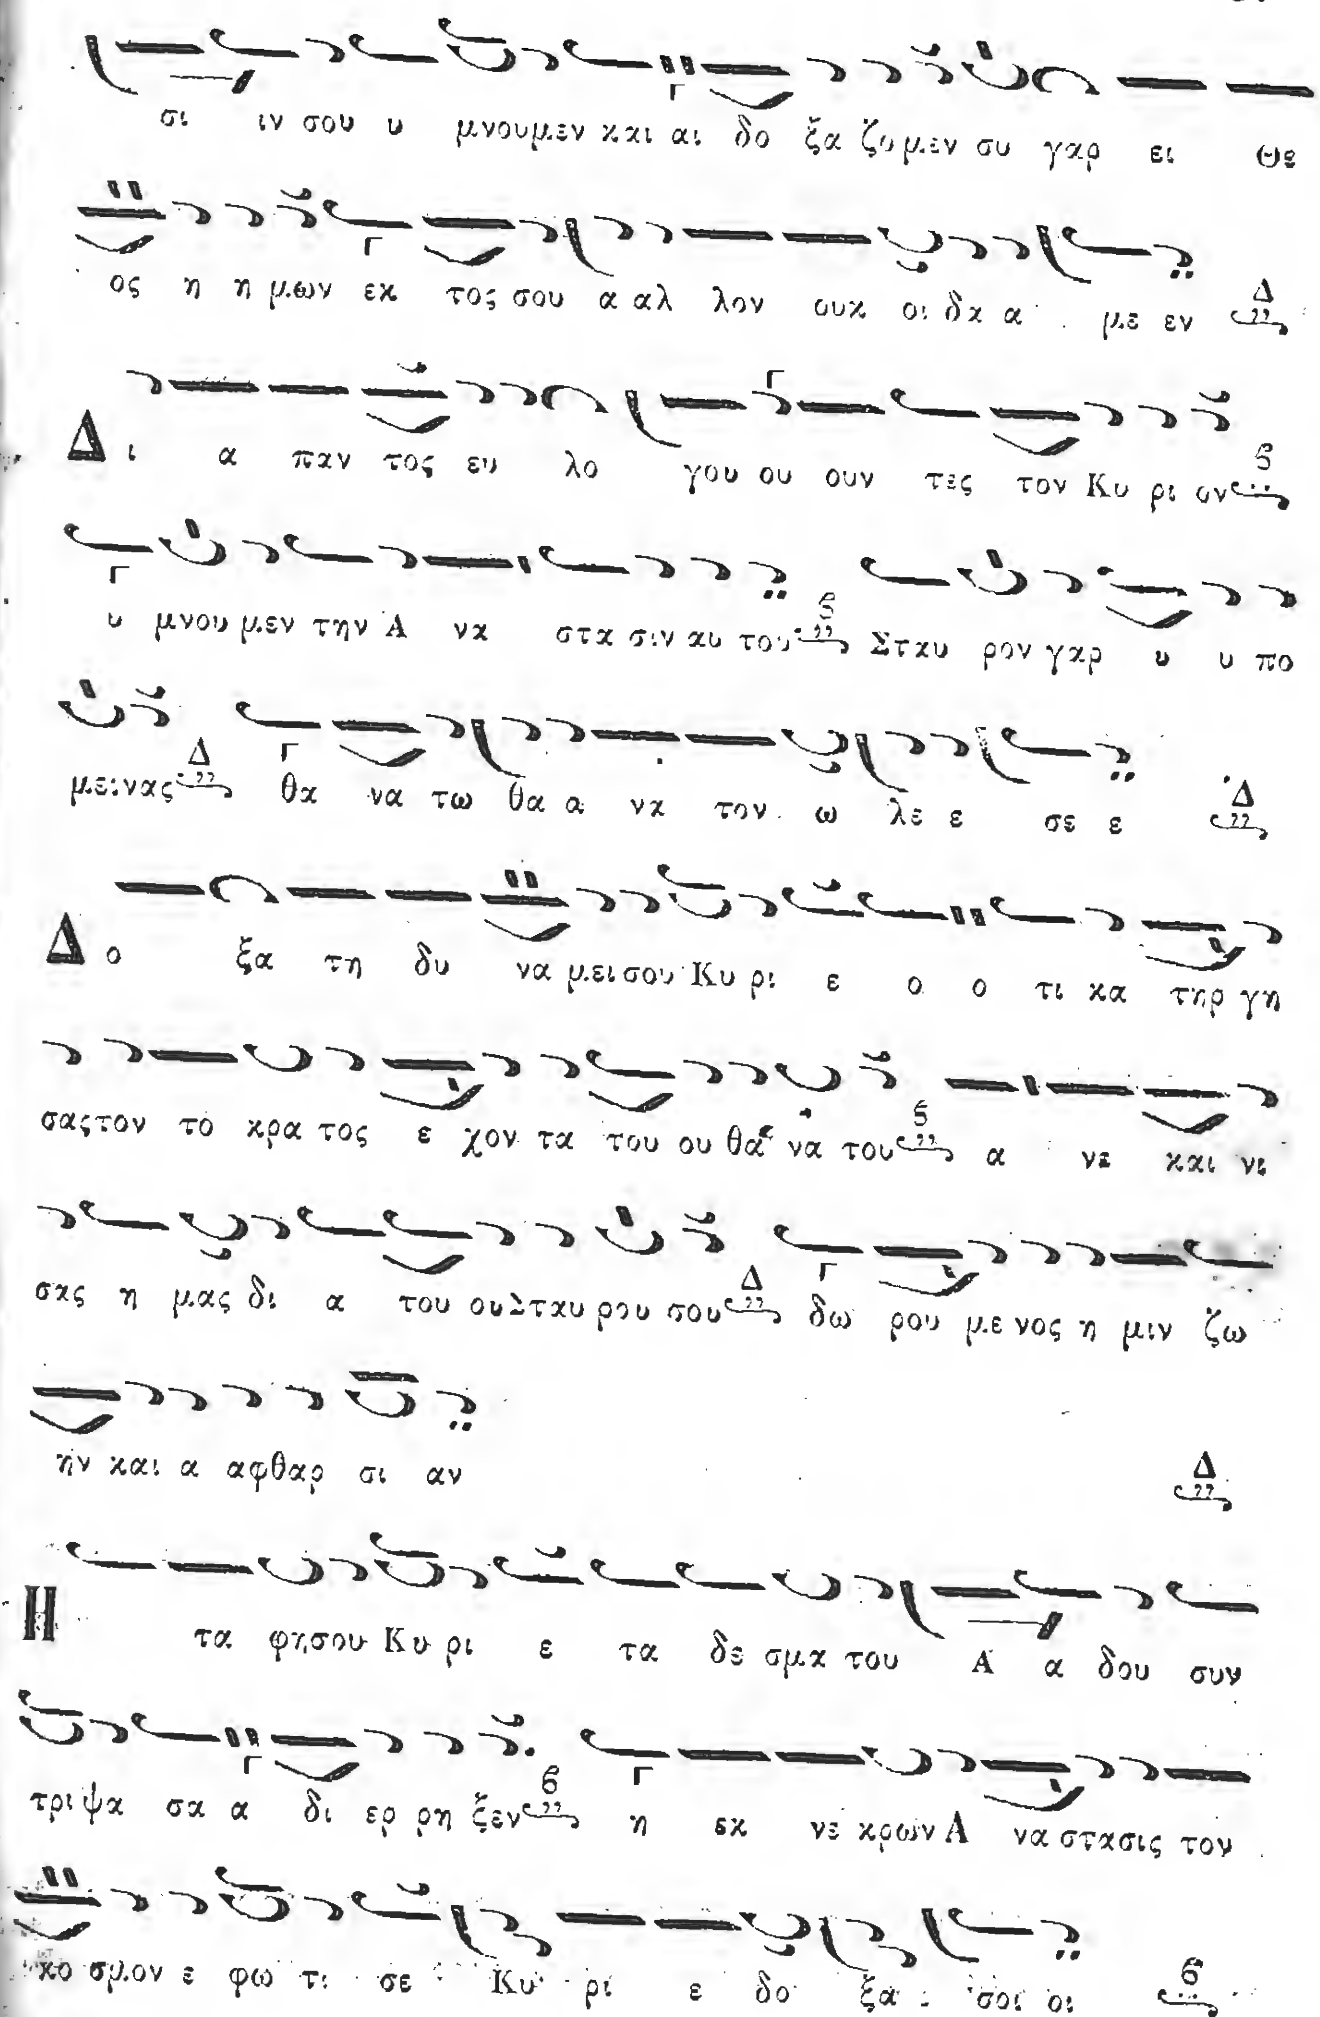 σι ιν σου υ μνουμεν και αι δο ξα ζομεν συ γαρ ει Θε
ος η η μων εκ τος σου α αλ λον ουκ οι δα α με εν Δ
Δι α παν τος ευ λο γου ου ουν τες τον Κυ ρι ον ς
υ μνου μεν την Α να στα σιν αυ του ς Σταυ ρον γαρ υ υ πο
μεινας Δ θα να τω θα α να τον ω λε ε σε ε Δ
Δο ξα τη δυ να μει σου Κυ ρι ε ο ο τι κα τηρ γη
σας τον το κρα τος ε χον τα του ου θα να του ς α νε και νι
σας η μας δι α του ου Σταυ ρου σου Δ δω ρου με νος η μιν ζω
ην και α αφθαρ σι αν Δ
Η τα φη σου Κυ ρι ε τα δε σμα του Α α δου συν
τρι ψα σα α δι ερ ρη ξεν 6 η εκ νε κρων Α να στασις τον
κο σμον ε φω τι σε Κυ ρι ε δο ξα σοι οι 6